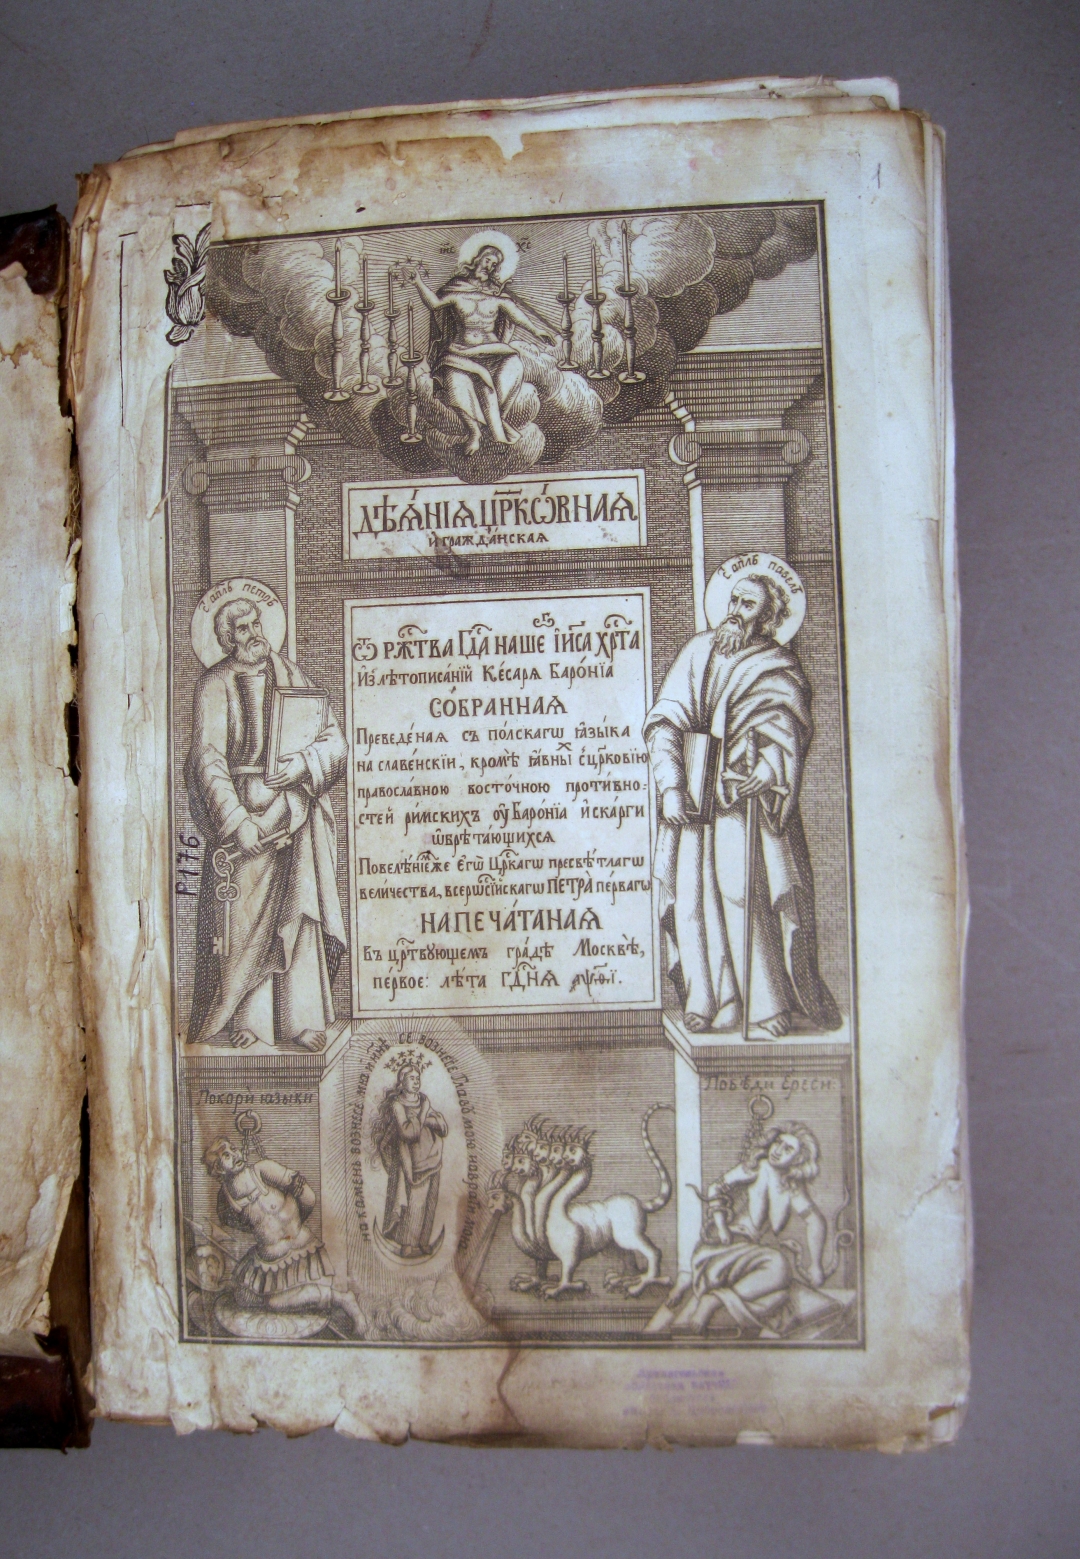 1
І҃ИС ХС҃
ДѢѦ́НІѦ ЦР҃КѠ́ВНАѦ
И҆ ГРАЖДА́НСКАѦ
С: апⷭ҇лъ петръ
С: апⷭ҇лъ павелъ
Ѿ РЖⷭ҇ТВА ГДⷭ҇А НАШЕⷢ҇ І҆И҃СА ХРⷭ҇ТА
И҆з̾ лѣтописа́нїй Ке́сарѧ Баро́нїа
СО́БРАННАѦ
Преведе́наѧ съ по́лскагѡ ꙗ҆зы́ка
наславе́нскїи, кромѣ̀ ꙗ҆́вныⷯ с̾ цр҃ковїю
православною восто́чною проти́вно:
стей ри́мскихъ ѹ҆ Баро́нїа и҆ ска́рги
ѡ҆брѣта́ющихсѧ
Повелѣ́нїемже є҆гѡ̀ Црⷭ҇кагѡ пресвѣ́тлагѡ
вели́чества, всерѡссі́йскагѡ ПЕТРА̀ пе́рвагѡ
НАПЕЧА́ТАНАѦ
Въ црⷭ҇твующемъ гра́дѣ Москвѣ̀,
пе́рвое: лѣ́та ГДⷭ҇НѦ ҂аѱѳ҃і.
P176
Покорѝ ꙗзы́ки
на камень вознесе мѧ и нн҃ѣ се вознесе главꙋ мою на враги моѧ
Побѣди є҆́реси: